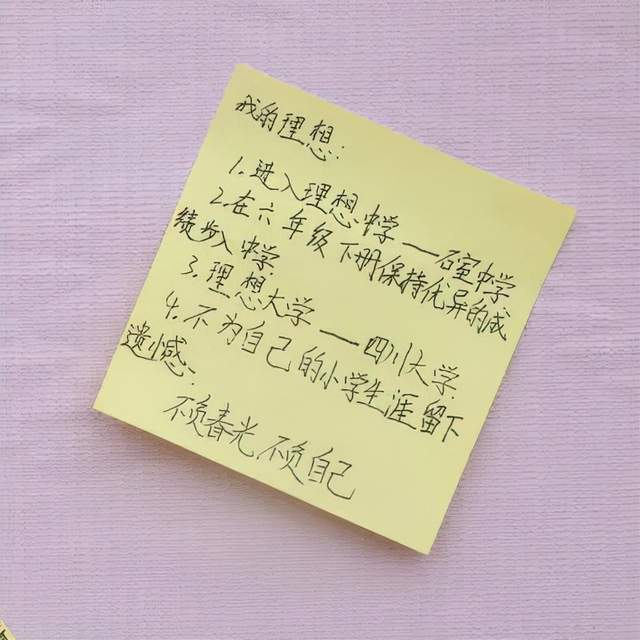 我的理想：
1.进入理想中学——石室中学
2.在六年级下册保持优异的成
绩步入中学
3.理想大学——四川大学.
4.不为自己的小学生涯留下
遗憾.
不负春光 不负自己